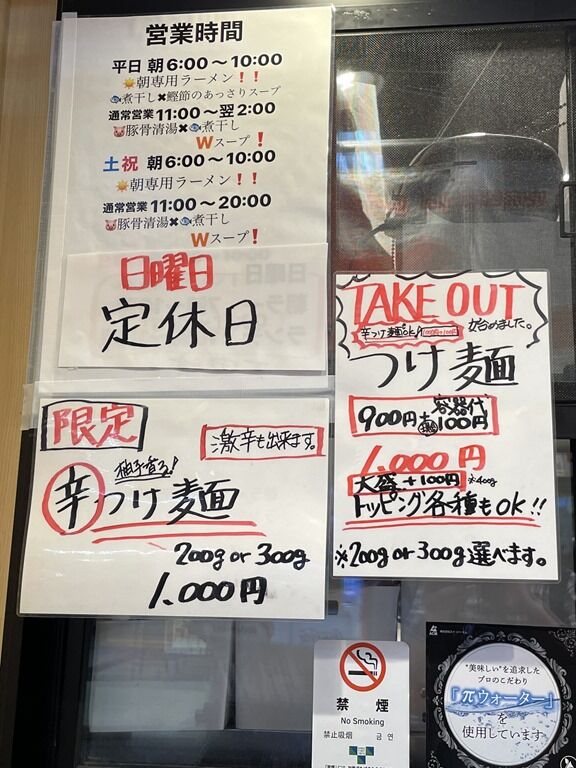 営業時間
平日 朝6:00〜10:00
☀朝専用ラーメン❗❗
🐟煮干し✖鰹節のあっさりスープ
通常営業 11:00〜翌2:00
🐷豚骨清湯✖🐟煮干し
Wスープ❗
土祝 朝6:00〜10:00
☀朝専用ラーメン❗❗
通常営業 11:00〜20:00
🐷豚骨清湯✖🐟煮干し
Wスープ❗
日曜日
定休日
限定
激辛も出来ます。
柚子香る!
辛つけ麺
200g or 300g
1.000円
TAKE OUT
辛つけ麺OK! 1.000円+100円
始めました。
つけ麺
900円+容器代100円
1.000円
大盛+100円 ※400g
トッピング各種もOK!!
※200g or 300g 選べます。
禁煙
No Smoking
禁止吸烟 금연
"美味しい"を追求した
プロのこだわり
「πウォーター」
を
使用しています